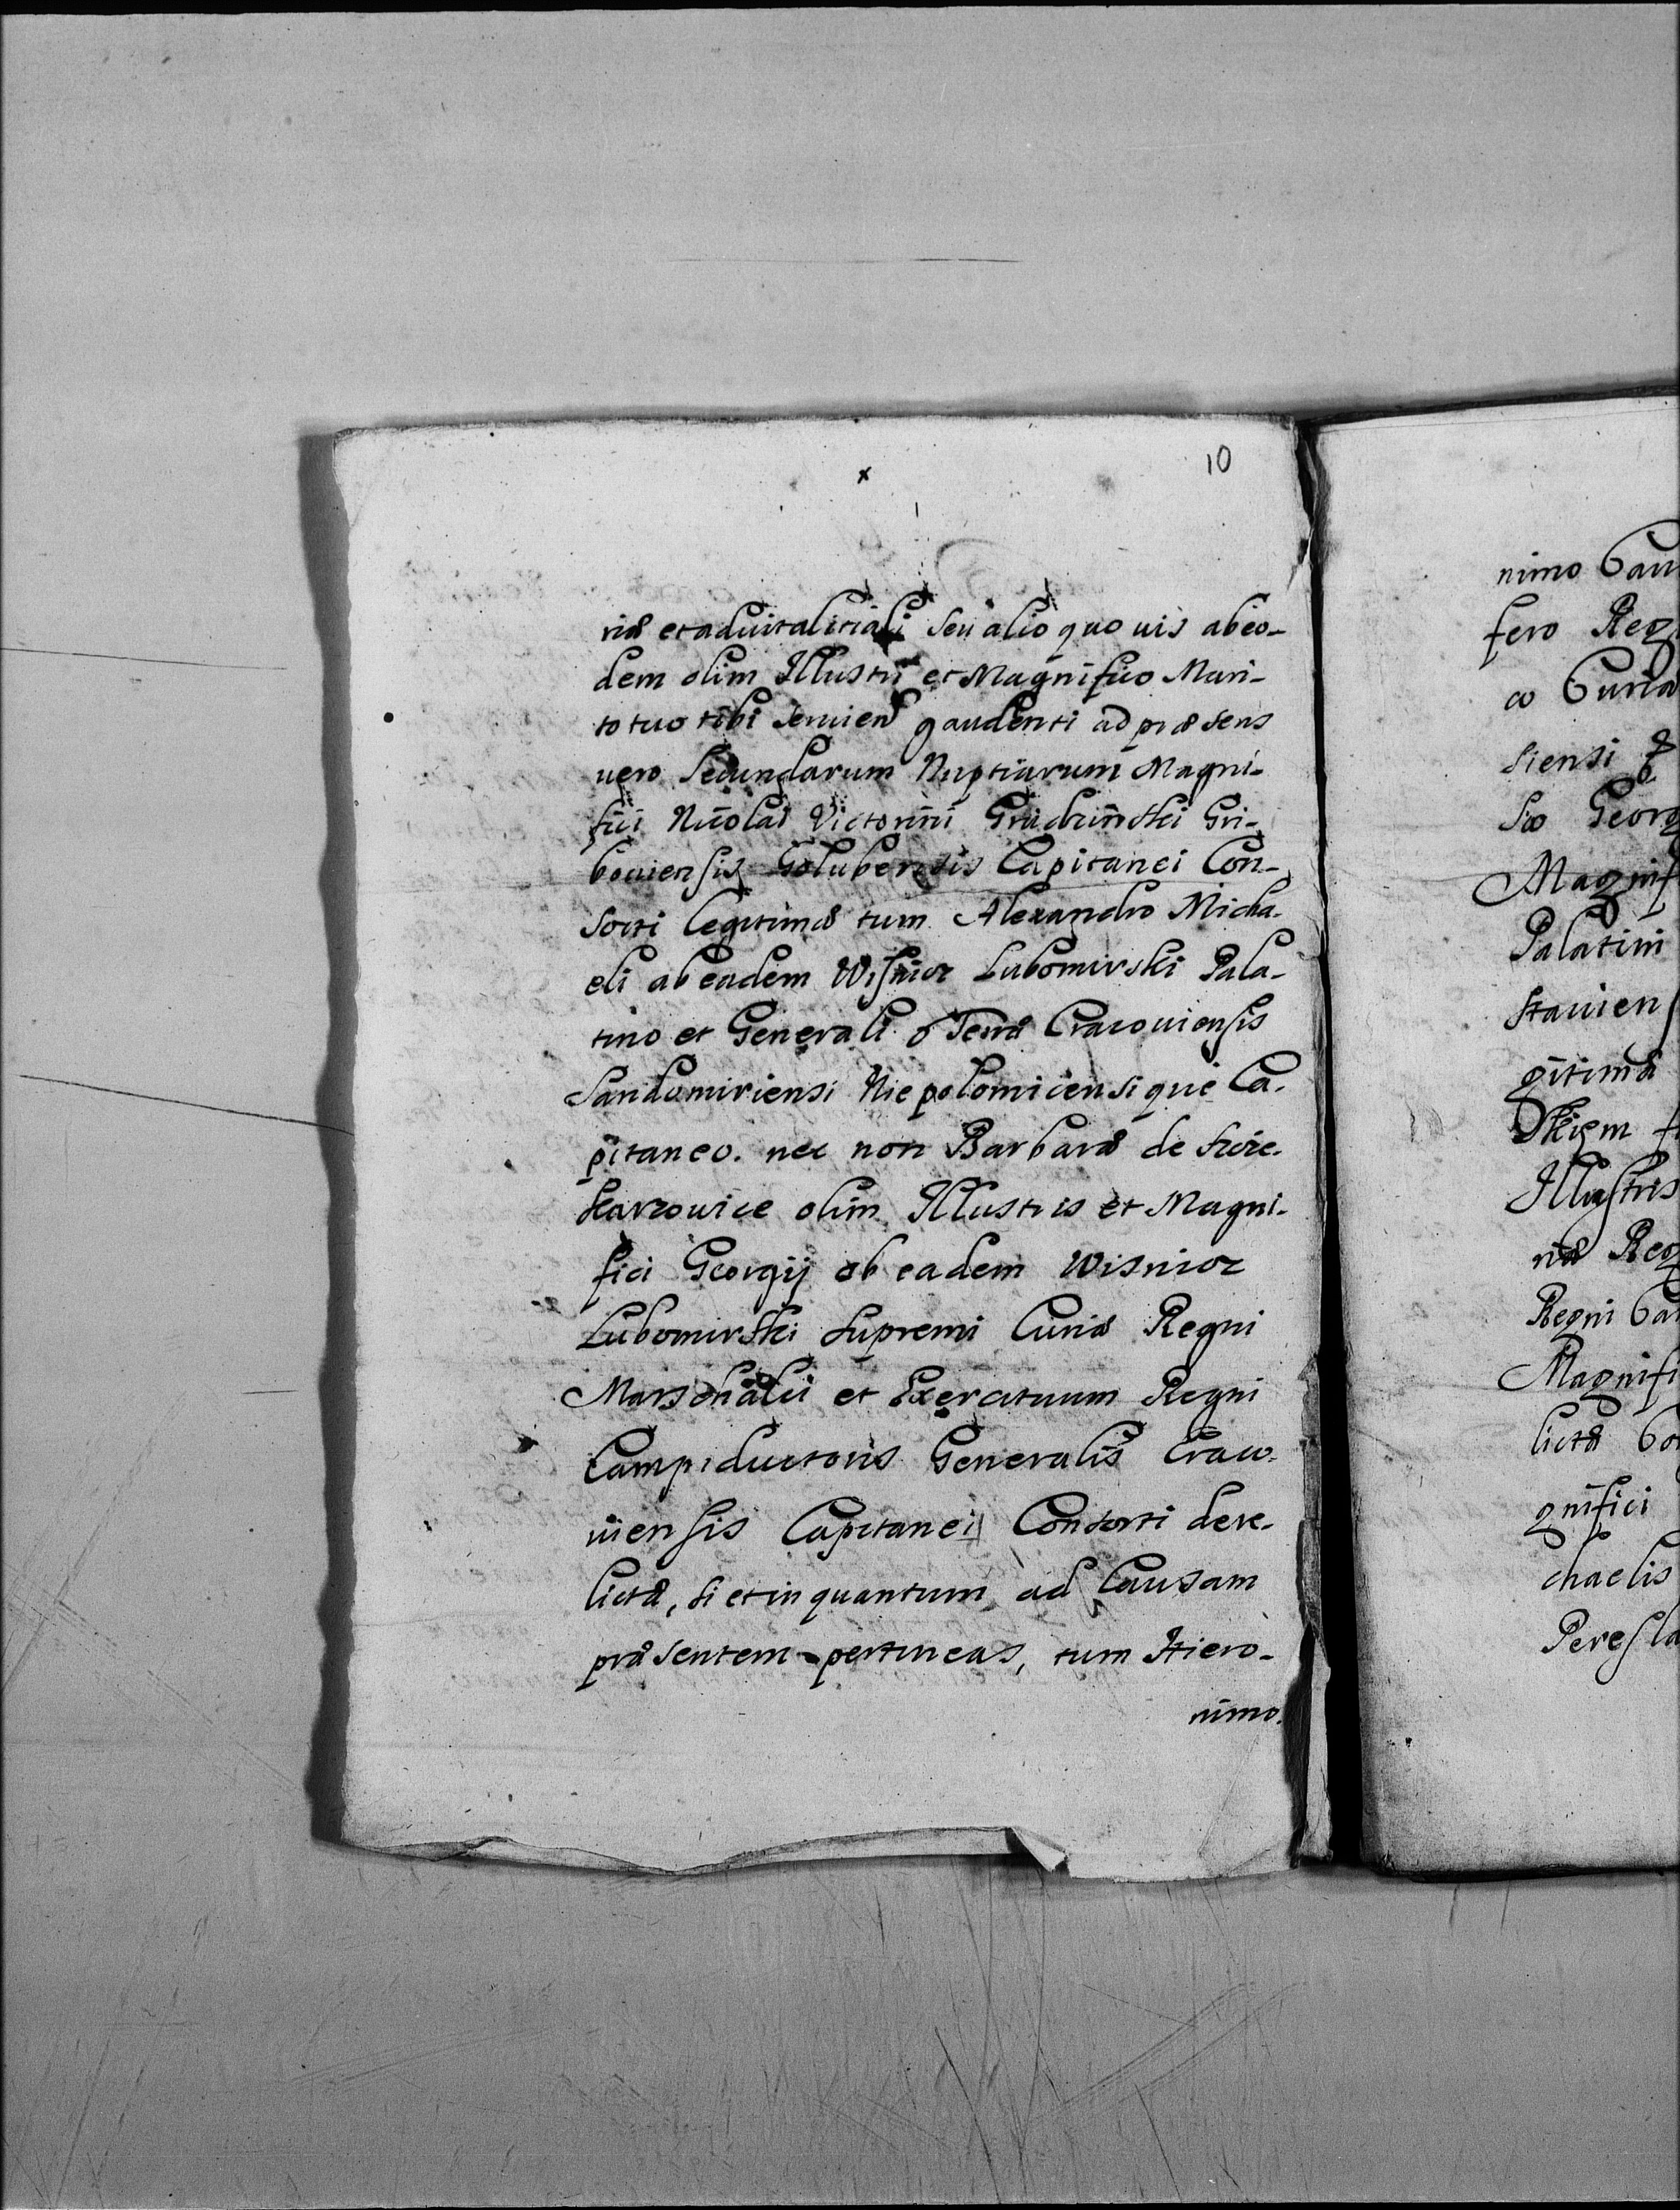 10
riæ et aduitalitiali seu alio quo uis ab eo-
dem olim Illustri et Magnifico Mari-
to tuo tibi seruien gaudenti ad præsens
uero secundarum Nuptiarum Magni-
fici Nicolai Victorini Grudzinski Gri-
bouiensis Golubensis Capitanei Con-
sorti legitimæ tum Alexandro Micha-
eli ab eadem Wisnicz Lubomirski Pala-
tino et Generali Terræ Cracouiensis
Sandomiriensi Niepolomicensique Ca-
pitaneo. nec non Barbaræ de
olim Illustris et Magni-
fici Georgij ab eadem Wisnicz
Lubomirski Supremi Curiæ Regni
Marschalci et Exercituum Regni
Campiductoris Generalis Craco-
uiensis Capitanei Consorti dere-
lictæ, si et in quantum ad Causam
præsentem pertineas, tum Hiero-
nimo.
nimo
fero Reg
co Curiæ
siensi
Georg
Magnif
Palatini
stauien
gitimæ
Illustris
riæ Reg
Regni
Magnifi
lictæ Co
gnifici
chaelis
Peresla